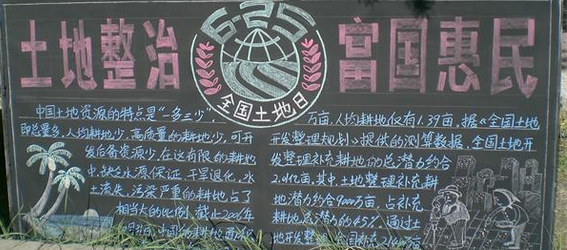 土地整治 富国惠民
6·25
全国土地日
中国土地资源的特点是“一多三少”,
即总量多,人均耕地少,高质量的耕地少,可开
发后备资源少.在这有限的耕地
中,缺乏水源保证,干旱退化,水
土流失,污染严重的耕地占了
相当大的比例,截止
中国的耕地
万亩,人均耕地仅有1.39亩,据《全国土地
开发整理规划》提供的测算数据,全国土地开
发整理补充耕地的总潜力约合
2.01亿亩,其中土地整理补充耕
地潜力约合9000万亩,占补充
耕地总潜力的45%.通过土
地开发整理,全国补充